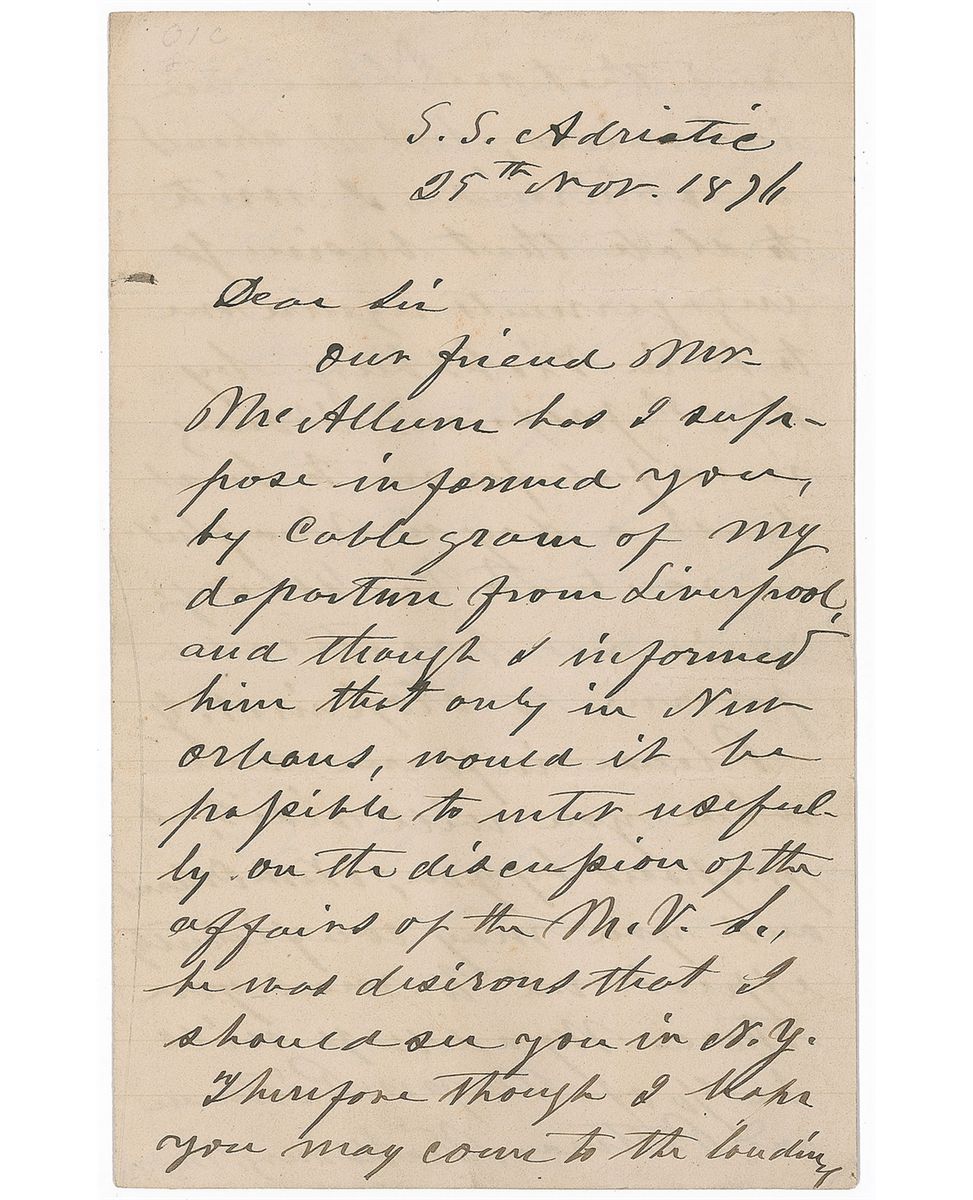 S. S. Adriatic
25th Nov. 1876
Dear Sir
Our friend Mr
McAllum has I sup-
pose informed you,
by Cablegram of my
departure from Liverpool,
and though I informed
him that only in New
Orleans, would it be
possible to enter useful-
ly on the discussion of the
affairs of the M.V. S.,
he was desirous that I
should see you in N.Y.
Therefore though I hope
you may come to the landing